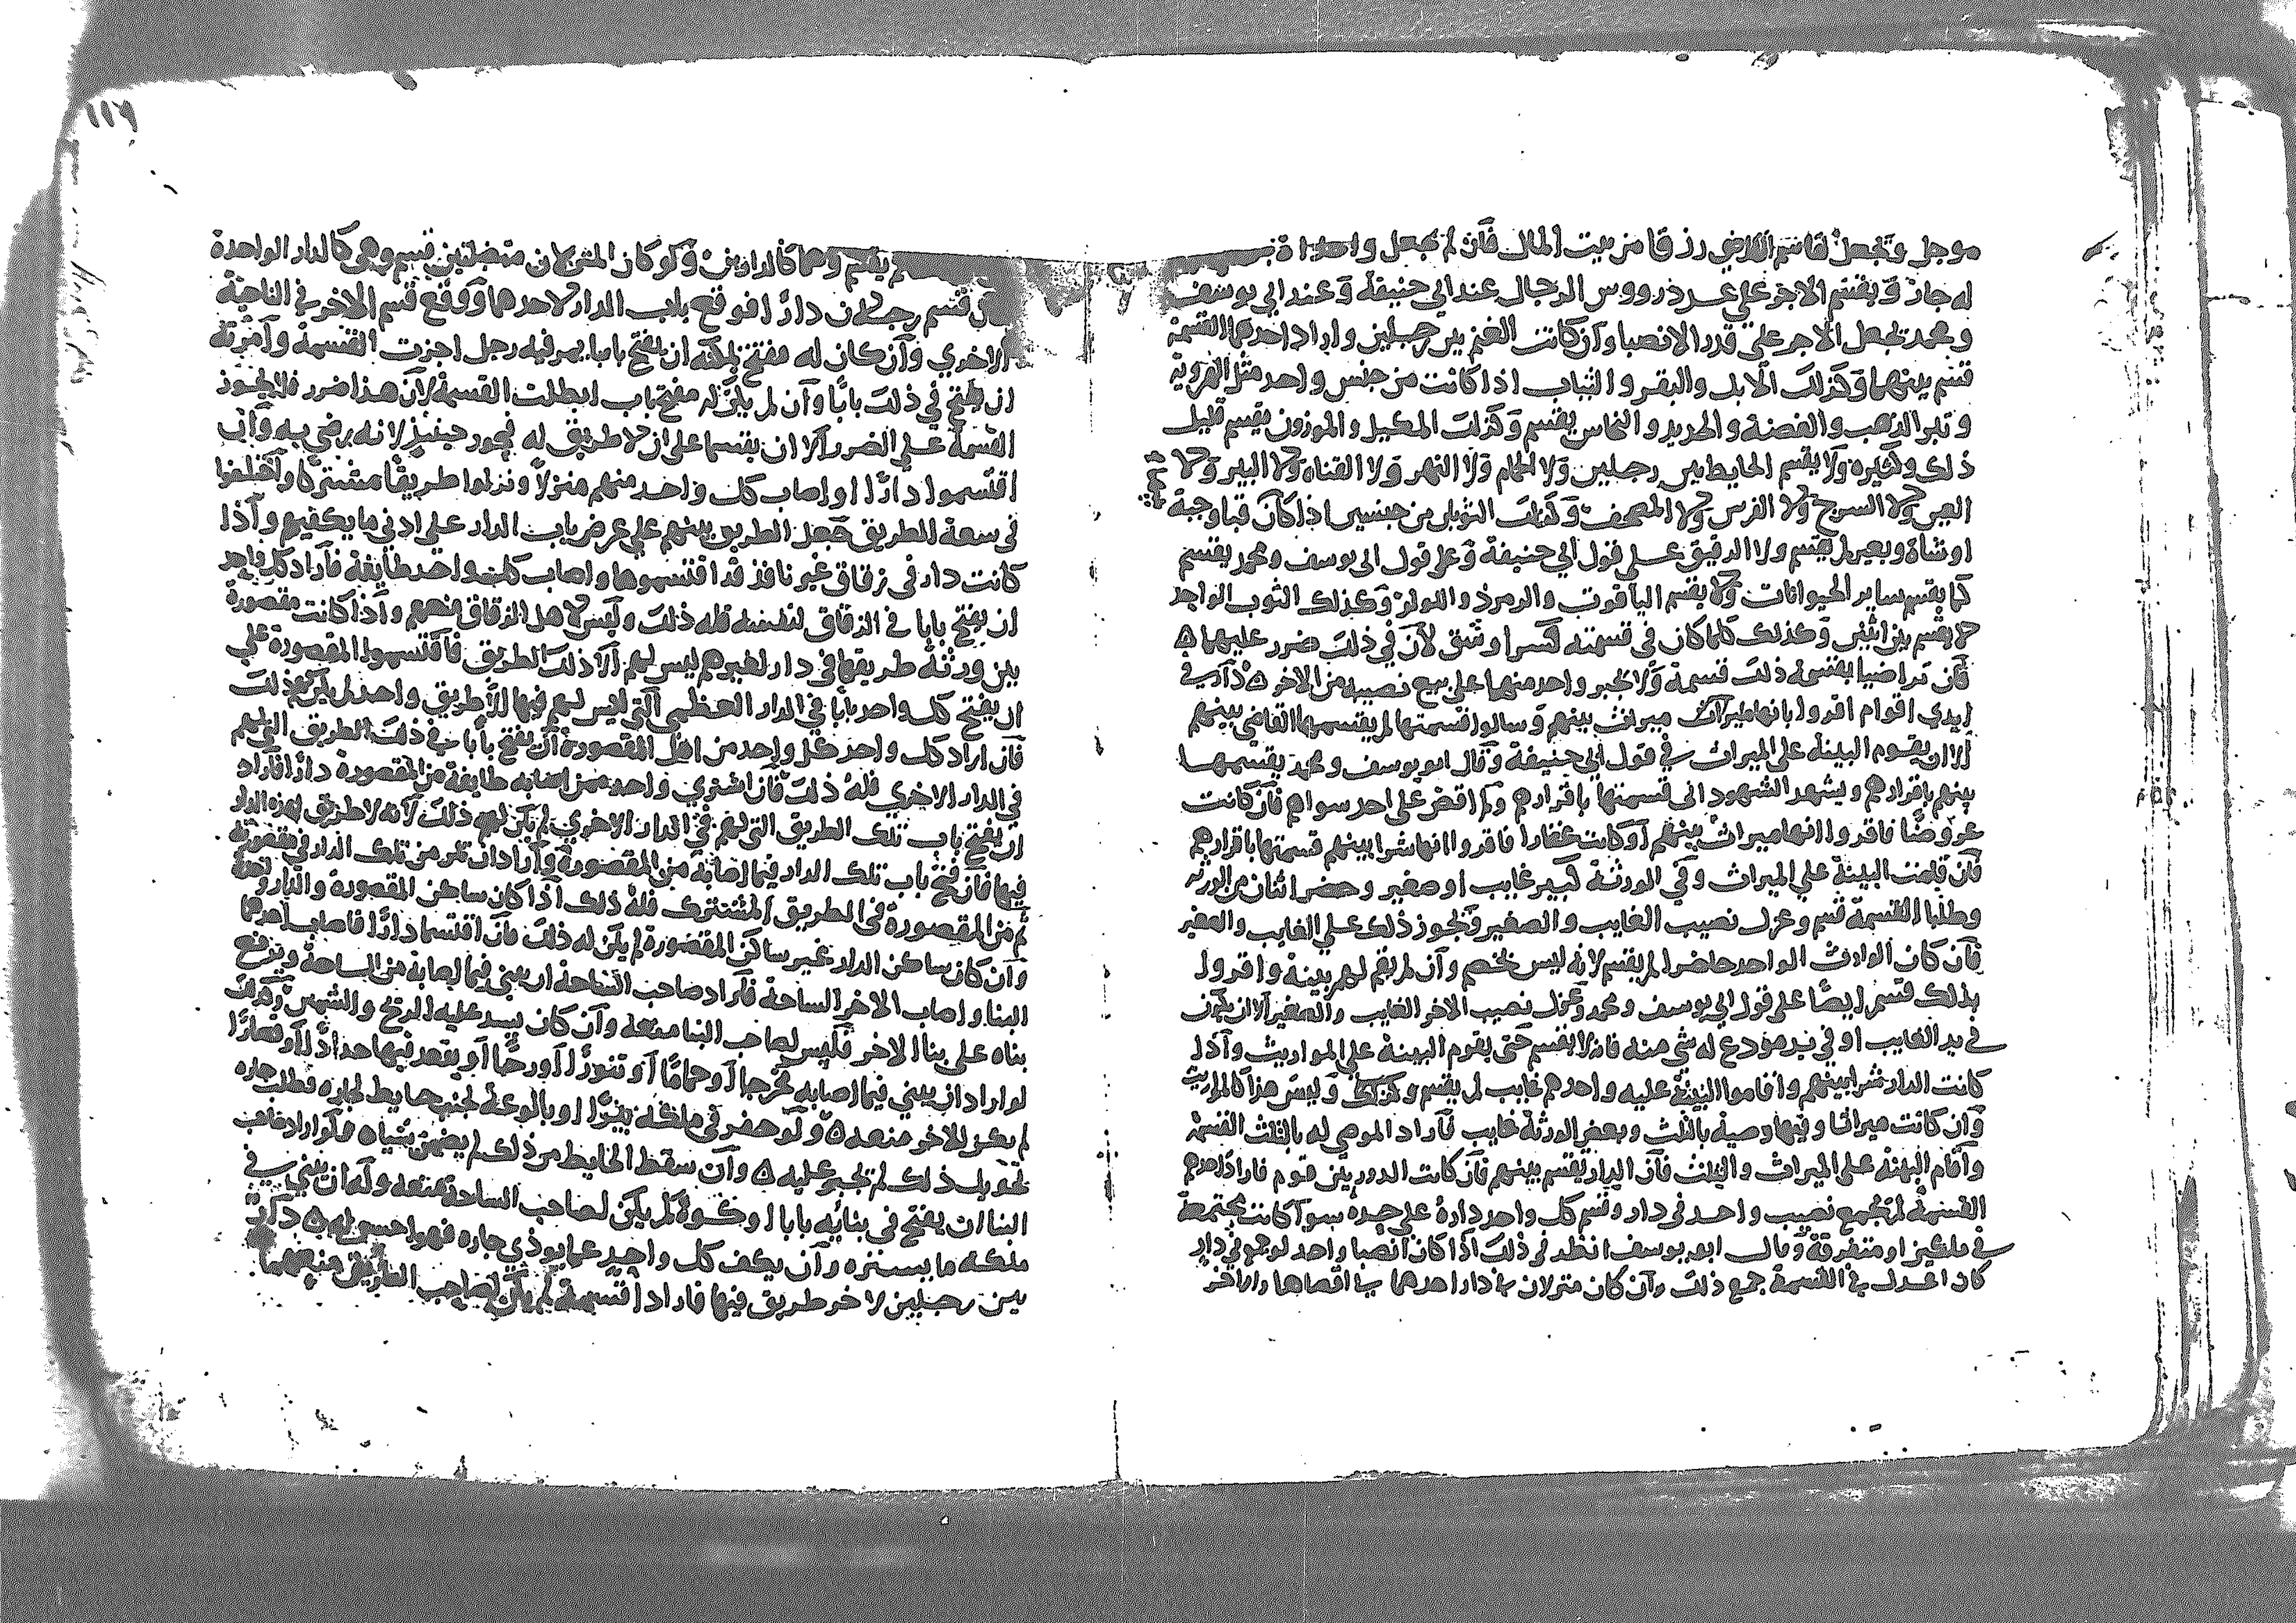 موجل وتجعل قاسم القاضي رزقا من بيت المال فان لم يجعل واحدا
له جاز ويقسم الاجر علي عدد رووس الرجال عند ابي حنيفة وعند ابي يوسف
ومحمد تجعل الاجر علي قدر الانصبا وان كانت الغنم بين رجلين واراد احدهما القسمة
قسم بينهما وكذلك الابل والبقر والثياب اذا كانت من جنس واحد مثل الهروية
وتبر الذهب والفضة والحديد والنحاس يقسم وكذلك المكيل والموزون يقسم قليل
ذلك وكثيره ولا يقسم الحايط بين رجلين ولا الحمام ولا النهر ولا القناه ولا البير ولا
العين ولا السرج ولا الفرس ولا المصحف وكذلك الثوبان من جنسين اذا كان قبا وجبة
او شاة وبعير لم يقسم ولا الدقيق علي قول ابي حنيفة وعلي قول ابي يوسف ومحمد يقسم
كما يقسم ساير الحيوانات ولا يقسم الياقوت والزمرذ واللولو وكذلك الثوب الواحد
لا يقسم بين اثنين وكذلك كلما كان في قسمته كسر او شق لان في ذلك ضرر عليهما ٥
فان تراضيا بقسمة ذلك قسمة ولا تجبر واحد منهما علي بيع نصيبه من الاخر ٥ دار في
ايدي اقوام اقروا بانها ميراث بينهم وسالوا قسمتها لم يقسمها القاضي بينهم
الا ان يقوم البينة علي الميراث في قول ابي حنيفة وقال ابو يوسف ومحمد يقسمها
بينهم باقرارهم ويشهد الشهود اني قسمتها باقرارهم ولم اقض علي احد سواهم فان كانت
عروضا فاقروا انها ميراث بينهم او كانت عقارا فاقروا انها شرا بينهم قسمتها باقرارهم
فان قامت البينة علي الميراث وفي الورثة كبير غايب او صغير وحضر اثنان من الورثة
وطلبا القسمة قسم وعزل نصيب الغايب والصغير ويجوز ذلك علي الغايب والصغير
فان كان الوارث الواحد حاضرا لم يقسم لانه ليس بخصم وان لم يقم لهم بينة واقروا
بذلك قسم ايضا علي قول ابي يوسف ومحمد وعزل نصيب الاخر الغايب والصغير الا ان يكون
في يد الغايب او في يد مودع له شي منه فانه لا يقسم حتي يقوم البينة علي المواريث واذا
كانت الدار شرا بينهم واقاموا البينة عليه واحدهم غايب لم يقسم وكذلك وليس هذا كالمواريث
وان كانت ميراثا وفيها وصية بالثلث وبعض الورثة غايب فاراد الموصي له بالثلث القسمة
واقام البينة علي الميراث والثلث فان الدار يقسم بينهم فان كانت الدور بين قوم فاراد احدهم
القسمة لم تجمع نصيب واحد في دار وقسم كل واحد دارة علي حده سوا كانت مجتمعة
في ملكين او متفرقة وقال ابو يوسف انظر في ذلك اذا كان انصبا واحد لو جمع في دار
كان اعدل في القسمة جمع ذلك وان كان منزلان في دار احدهما في اقصاها والاخر
١١٦
لم يقسم وهما كالدارين ولو كان المنزلان متصلتين قسم وهي كالدار الواحدة
قسم رجلان دارا فوقع باب الدار لاحدهما ووقع قسم الاخر في الناحية
الاخري وان كان له مفتح يمكنه ان يفتح بابا يمر فيه رجل اجزت القسمة وامرته
ان يفتح في ذلك بابا وان لم يكن له مفتح باب ابطلت القسمة لان هذا ضرر فلا يجوز
القسمة علي الضرر الا ان يقسما علي ان لا طريق له فيجوز حينيذ لانه رضي به وان
اقتسموا دارا واصاب كل واحد منهم منزلا وتركوا طريقا مشتركا واختلفوا
في سعة الطريق جعل الطريق بينهم علي عرض باب الدار علي ادني ما يكفيهم واذا
كانت دار في زقاق غير نافذ قد اقتسموها واصاب كل واحد طايفة فاراد كل واحد
ان يفتح بابا في الزقاق لنفسه فله ذلك وليس لاهل الزقاق منعهم واذا كانت مقصورة
بين ورثة طريقها في دار لغيرهم ليس لهم الا ذلك الطريق فاقتسموا المقصورة علي
ان يفتح كل واحد بابا في الدار العظمي التي ليس لهم فيها الا طريق واحد لم يكن ذلك
فان اراد كل واحد من اهل المقصورة ان يفتح بابا في ذلك الطريق التي لهم
في الدار الاخري فله ذلك فان اشتري واحد ممن اصابه طايفة من المقصورة دارا فاراد
ان يفتح باب تلك الطريق التي لهم في الدار الاخري لم يكن لهم ذلك لانه لا طريق لهذه الدار
فيها فان فتح باب تلك الدار فيما اصابه من المقصورة واراد ان تمر من تلك الدار في مقصورته
ثم من المقصورة في الطريق المشترك فله ذلك اذا كان ساكن المقصورة والدار واحد
وان كان ساكن الدار غير ساكن المقصورة لم يكن له ذلك فان اقتسما دارا فاصاب احدهما
البنا واصاب الاخر الساحة فاراد صاحب الساحة ان يبني فيما اصابه من الساحة ويرفع
بناه علي بنا الاخر فليس لصاحب البنا منعه وان كان يسد عليه الريح والشمس وكذلك
لو اراد ان يبني فيما اصابه مخرجا او حماما او تنورا او رحا او يقعد فيها حدادا او قصارا
لم يكن للاخر منعه ٥ ولو حفر في ملكه بيرا او بالوعة لجنب حايط لجاره فطلب جاره
تحويل ذلك لم تجبر عليه ٥ وان سقط الحايط من ذلك لم يضمن شياه ولو اراد صاحب
البنا ان يفتح في بنايه بابا او كوة لم يكن لصاحب الساحة منعه وله ان يبني في
ملكه ما يستره وان يكف كل واحد عما يوذي جاره فهو احسن له ٥ دار
بين رجلين لاخر طريق فيها فاراد القسمة لم يكن لصاحب الطريق منعهما